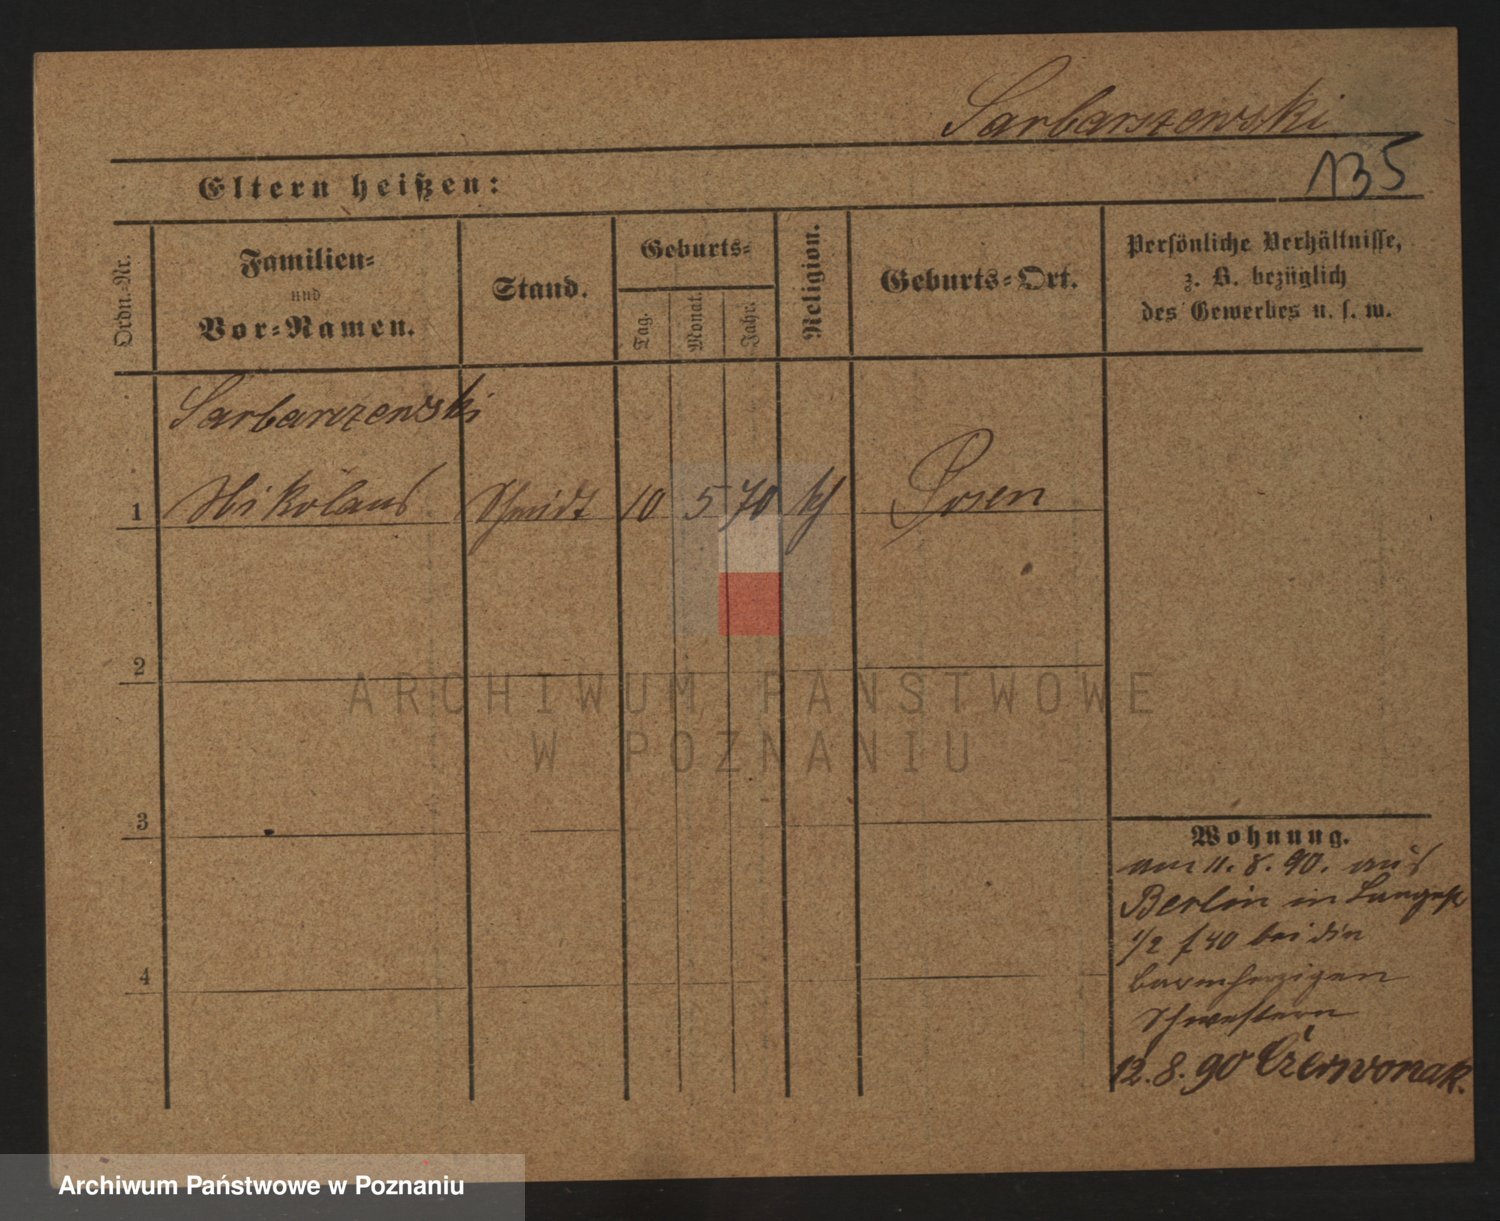 Sarbarszewski
135
Eltern heißen:
Ordn.-Nr.
Familien-
und
Vor-Namen.
Stand.
Geburts-
Tag.
Monat.
Jahr.
Religion.
Geburts-Ort.
Persönliche Verhältnisse,
z. B. bezüglich
des Gewerbes u. s. w.
Sarbarszewski
1 Nikolaus Schmidt 10 5 70 Posen
2
3
4
ARCHIWUM PAŃSTWOWE
W POZNANIU
Wohnung.
am 11. 8. 90. aus
Berlin in Langest
1/2 bei den
barmherzigen
Schwestern
12. 8. 90 Czerwonak.
Archiwum Państwowe w Poznaniu